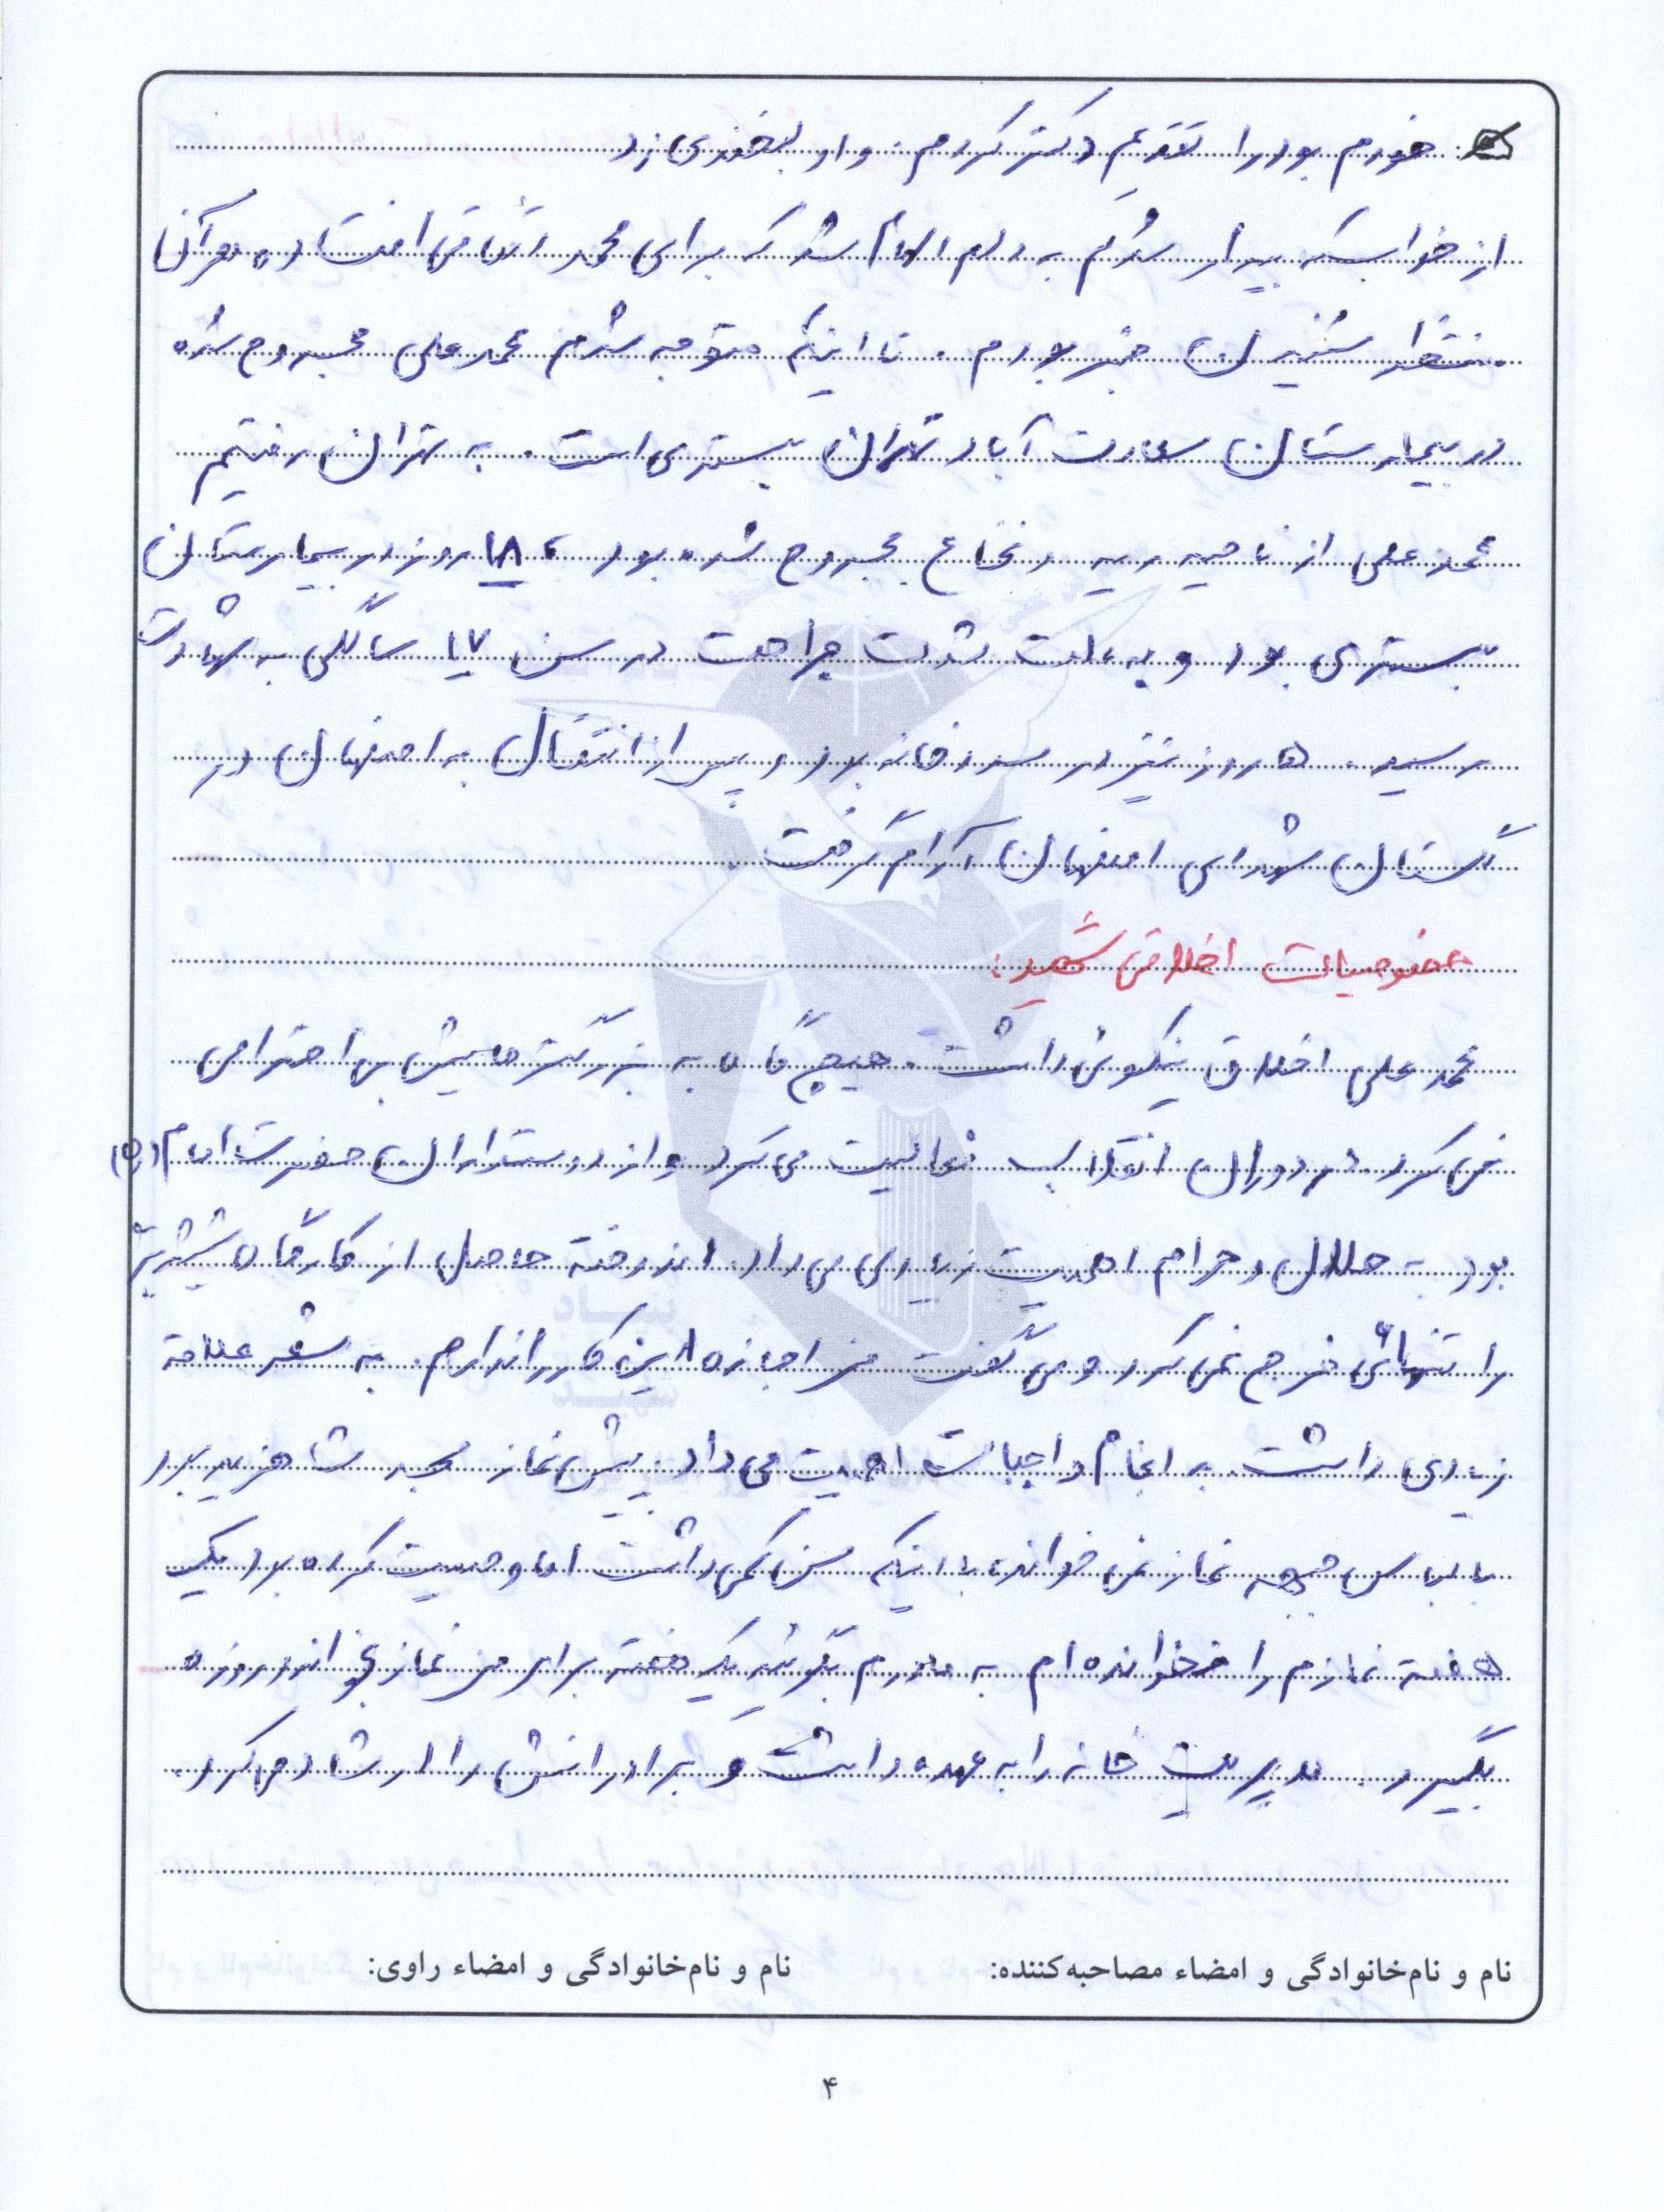 خودم بود را تقدیم دکتر کردم. و او لبخندی زد
از خواب که بیدار شدم به دلم الهام شد که برای محمد اتفاقی افتاده هر آن
منتظر شنیدن خبر بودم. تا اینکه متوجه شدم محمدعلی مجروح شده
در بیمارستان سعادت آباد تهران بستری است. به تهران رفتیم
محمدعلی از ناحیه ریه و نخاع مجروح شده بود، ۱۸ روز در بیمارستان
بستری بود و به علت شدت جراحت در سن ۱۷ سالگی به شهادت
رسید. ۵ روز نیز در سردخانه بود و پس از انتقال به اصفهان در
گلستان شهدای اصفهان آرام گرفت.
خصوصیات اخلاقی شهید:
محمدعلی اخلاق نیکوئی داشت. هیچ گاه به بزرگترهایش بی احترامی
نمی کرد. در دوران انقلاب فعالیت می کرد و از دوستداران حضرت امام (ره)
بود. به حلال و حرام اهمیت زیادی می داد. اندوخته حاصل از کارگاه شیشه بری
را تنهائی خرج نمی کرد و می گفت من اجازه این کار را ندارم. به شعر علاقه
زیادی داشت. به انجام واجبات اهمیت می داد. پیش نماز مسجد شاهزید بود
با لباس جبهه نماز نمی خواند، با اینکه سن کمی داشت اما وصیت کرده بود یک
هفته نمازم را نخوانده ام به مادرم بگوئید یک هفته برای من نماز بخواند و روزه
بگیرد. مدیریت خانه را به عهده داشت و برادرانش را ارشاد می کرد.
نام و نام‌خانوادگی و امضاء مصاحبه‌کننده: نام و نام‌خانوادگی و امضاء راوی:
۴
بنیاد
شهید